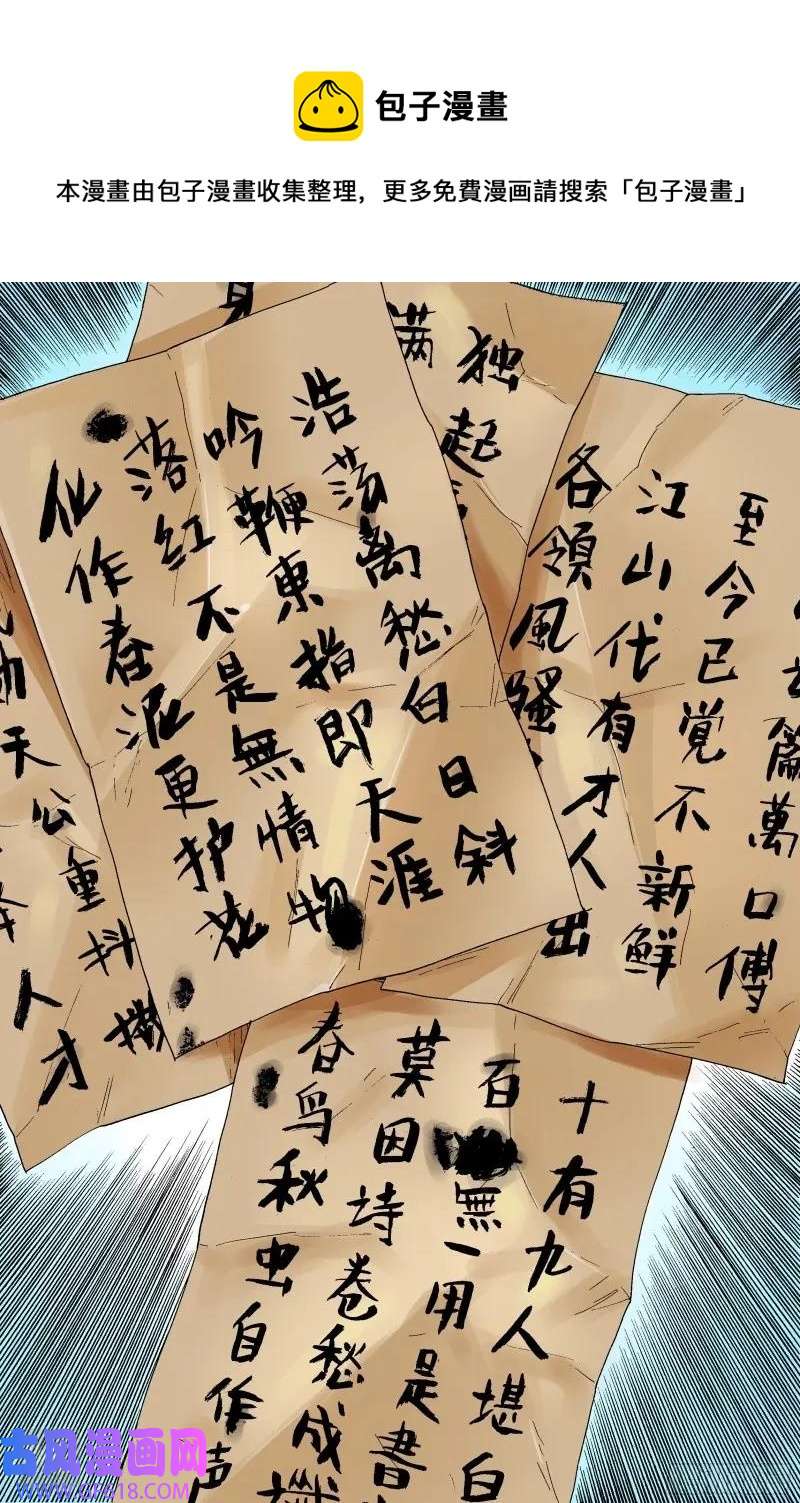 包子漫畫
本漫畫由包子漫畫收集整理，更多免費漫画請搜索「包子漫畫」
身
独起
满
浩荡离愁白日斜
吟鞭東指即天涯
落红不是無情物
化作春泥更护花
篇萬口傳
至今已覚不新鮮
江山代有才人出
各領風骚
天公重抖擞
人才
十有九人堪白
百無一用是書
莫因诗卷愁成
春鸟秋虫自作声
古风漫画网
WWW.GF818.COM